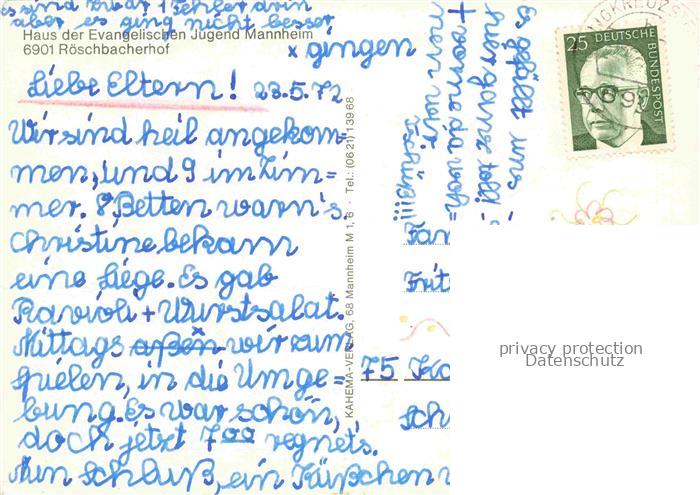 es sind zwar 1 Fehler drin
aber es ging nicht besser
Haus der Evangelischen Jugend Mannheim
6901 Röschbacherhof
x gingen
Liebe Eltern! 23.5.72
Wir sind heil angekom=
men, und 9 im Zim=
mer. 8 Betten warn's
Christine bekam
eine Liege. Es gab
Ravioli + Wurstsalat.
Mittags aßen x wir zum
spielen, in die Umge=
bung. Es war schön,
doch jetzt 7 00 regnet's.
Nun schluß, ein Küßchen
KAHEMA-VERLAG, 68 Mannheim M 1, 6 · Tel.: (06 21) 1 39 68
Es gefällt uns
hier ganz toll!
nur
Tschüß!!!!
25 DEUTSCHE BUNDESPOST
Fam
Frit
75 Ka
Sch
privacy protection
Datenschutz